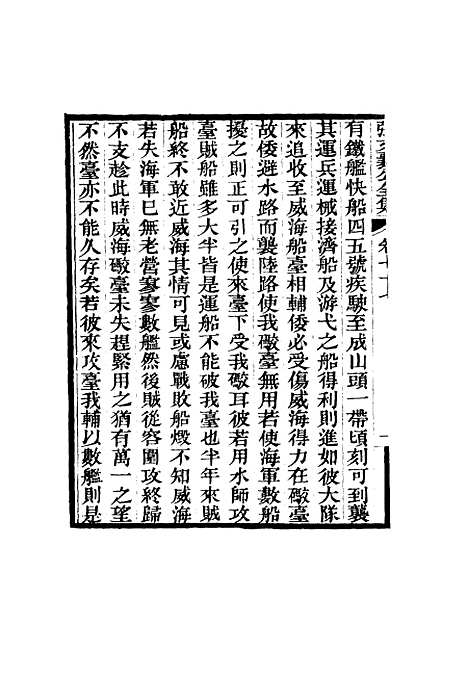 張文襄公全集
卷七十七
一
有鐵艦快船四五號疾駛至成山頭一帶頃刻可到襲
其運兵運械接濟船及游弋之船得利則進如彼大隊
來追收至威海船臺相輔倭必受傷威海得力在礮臺
故倭避水路而襲陸路使我礮臺無用若使海軍數船
擾之則正可引之使來臺下受我礮耳彼若用水師攻
臺賊船雖多大半皆是運船不能破我臺也半年來賊
船終不敢近威海其情可見或慮戰敗船燬不知威海
若失海軍已無老營寥寥數艦然後賊從容圍攻終歸
不支趁此時威海礮臺未失趕緊用之猶有萬一之望
不然臺亦不能久存矣若彼來攻臺我輔以數艦則是